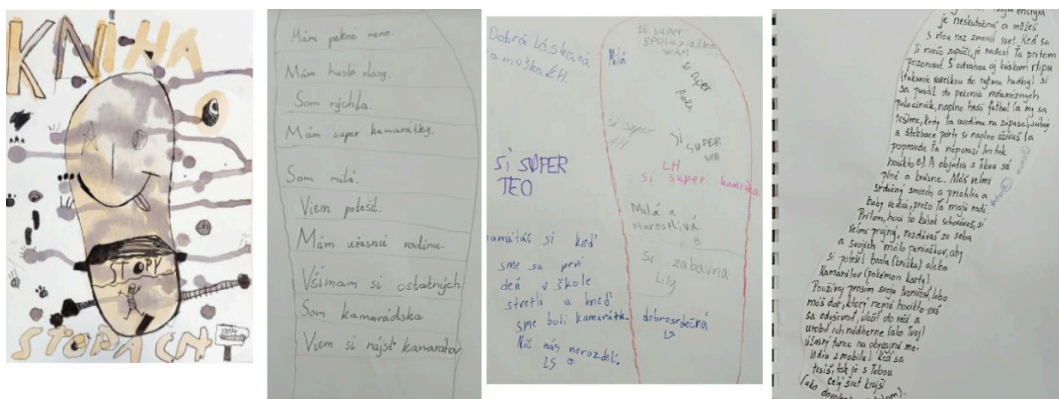 KNIHA
STOPY
STOPÁCH
Mám pekné meno.
Mám husté vlasy.
Som rýchla.
Mám super kamarátky.
Som milá.
Viem potešiť.
Mám úžasnú rodinu.
Všímam si ostatných
Som kamarádska
Viem si nájsť kamarátov
Dobrá láskavá
SI SUPER
TEO
si keď
sme sa prvý
deň v škole
stretli a hneď
sme boli kamarátk.
Nič nás nerozdelí.
LS
si super
Milá
si super
si super
SI
SUPER
LH
si super kamoška
Milá a
starostlivá
Si zábavná
Lily
dobrosrdečná
LS
energia
je neskutočná a môžeš
s ňou raz zmeniť svet. Keď sa
si niečo zapáči, je radosť Ťa pritom
pozorovať. S odvahou aj kúskom vtipu
do rytmu hudby) si
sa pustil do pečenia
palaciniek, naplno hráš futbal (a my sa
tešíme, kedy Ťa uvidíme na zápase), súboj
a párty si naplno užívaš (a
popravde Ťa neporazí len tak
hocikto). A objatia s Tebou sú
plné a krásne. Máš veľmi
srdečný smiech a
baby vedia, prečo Ťa majú rady.
Pritom, hoci to kúsok schovávaš, si
veľmi prajný, rozdávaš zo seba
a svojich málo peniažkov, aby
si potešil brata (knižka) alebo
kamarátov (pokémon karty).
Používaj prosím svoju tvorivosť, lebo
máš dar, ktorý nemá hocikto
sa odušu, vložiť do vecí a
urobiť ich nádherne (ako Tvoj
úžasný tunel na objavenie
z mobilu). Keď sa
tešíš, tak je s Tebou
celý svet krajší